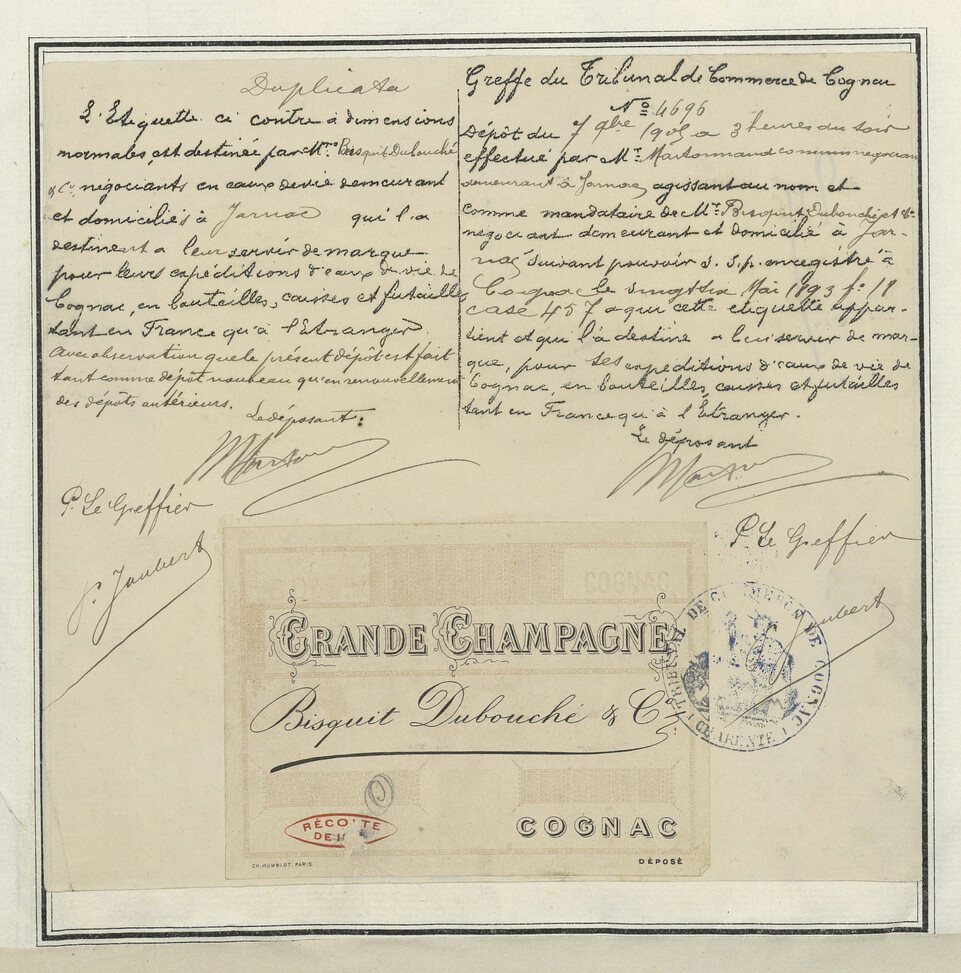 Duplicata
L'Etiquette ci contre à dimensions
normales, est destinée par Mrs Bisquit Dubouché
& Cie négociants en eaux de vie demeurant
et domiciliés à Jarnac qui l'a
destinent a leur servir de marque
pour leurs expéditions d'eaux de vie de
Cognac, en bouteilles, caisses et futailles
tant en France qu'à l'Étranger.
Avec observation que le présent dépôt est fait
tant comme dépôt nouveau qu'en renouvellement
des dépôts antérieurs.
Le déposant:
P. Le Greffier
P. Joubert
Greffe du Tribunal de Commerce de Cognac
No 4696
Dépôt du 7 9bre 1905 a 3 heures du soir
effectué par Mr négociant
demeurant à Jarnac, agissant au nom et
comme mandataire de Mrs Bisquit Dubouché et Cie
négociant demeurant et domicilié à Jar-
nac suivant pouvoir s. s. p. enregistré à
Cognac le vingt six Mai 1893 fo 18
case 457 a qui cette etiquette appar-
tient et qui l'à destine a leur servir de mar-
que, pour ses expéditions d'eaux de vie de
Cognac, en bouteilles, caisses et futailles
tant en France qu'à l'Étranger.
Le déposant
P. Le Greffier
Joubert
GRANDE CHAMPAGNE
Bisquit Dubouché & Co
TRIBUNAL DE COMMERCE DE COGNAC
CHARENTE
RÉCOLTE
DE
COGNAC
CH. HUMBLOT. PARIS
DÉPOSÉ